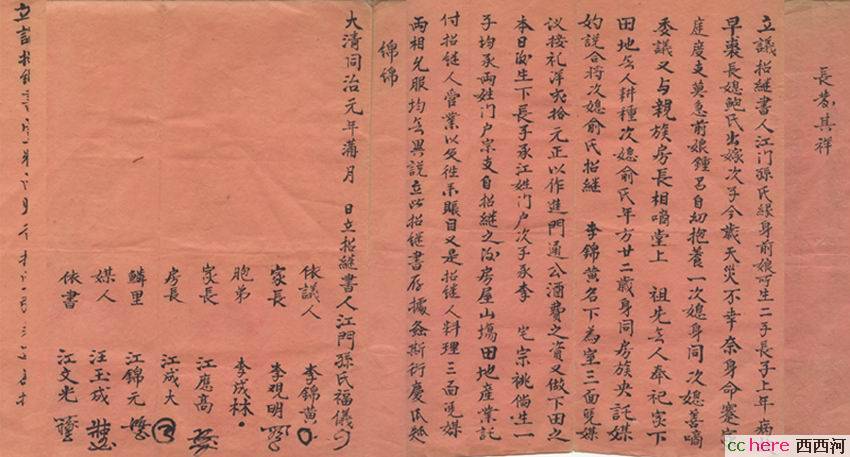 長發其祥
立議招繼書人江門孫氏緣身前娘所生二子長子上年病
早喪長媳鮑氏出嫁次子今歲天災不幸奈身命蹇家
庭度支莫急前娘鍾呂自幼抱養一次媳身同次媳善嘀
委議又与親族房長相嘀堂上 祖先無人奉祀家下
田地無人耕種次媳俞氏年方廿二歲身同房族央託媒
妁說合將次媳俞氏招繼 李錦黄名下為室三面凴媒
議接礼洋弍拾元正以作進門通公酒費之資又做下田之
本日後生下長子承江姓門户次子承李 宅宗祧倘生一
子均承両姓門户宗支自招繼之後房屋山塲田地產業託
付招繼人管業以及徃來賬目又是招繼人料理三面凴媒
両相允服均無異說立此招繼書存據螽斯衍慶瓜瓞
綿綿
大清同治元年 月 日立招繼書人江門孫氏福儀
依議人 李錦黄
家長 李观明
胞弟 李成林
家長 江應高
房長 江成大
鱗里 江錦元
媒人 汪玉成
依書 江文光
cchere 西西河